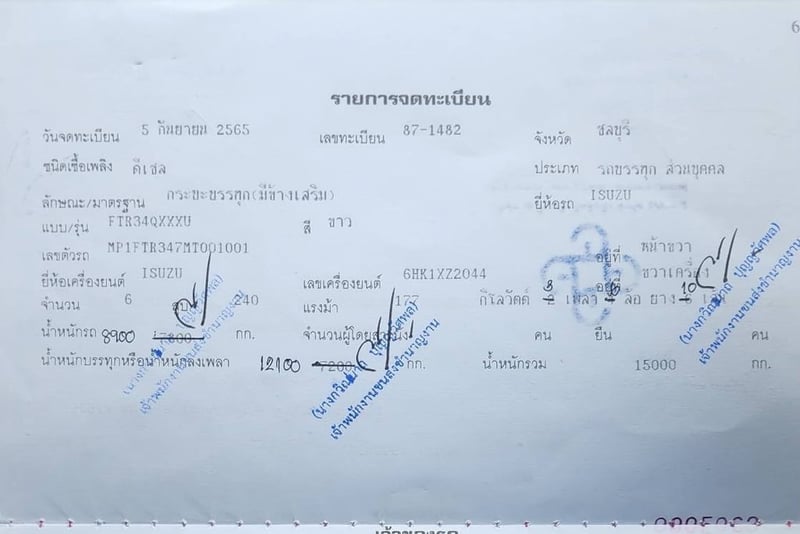 6
รายการจดทะเบียน
วันจดทะเบียน 5 กันยายน 2565 เลขทะเบียน 87-1482 จังหวัด ชลบุรี
ชนิดเชื้อเพลิง ดีเซล ประเภท รถบรรทุก ส่วนบุคคล
ลักษณะ/มาตรฐาน กระบะบรรทุก(มีข้างเสริม) ยี่ห้อรถ ISUZU
แบบ/รุ่น FTR34QXXXU สี ขาว
เลขตัวรถ MP1FTR347MT001001 อยู่ที่ หน้าขวา
ยี่ห้อเครื่องยนต์ ISUZU เลขเครื่องยนต์ 6HK1XZ2044 อยู่ที่ ขวาเครื่อง
จำนวน 6 สูบ 240 แรงม้า 177 กิโลวัตต์ 3 เพลา 8 ล้อ ยาง 10 เส้น
น้ำหนักรถ 8900 7800 กก. จำนวนผู้โดยสาร นั่ง คน ยืน คน
น้ำหนักบรรทุกหรือน้ำหนักลงเพลา 12100 7200 กก. น้ำหนักรวม 15000 กก.
เจ้าพนักงานขนส่งชำนาญงาน
เจ้าพนักงานขนส่งชำนาญงาน
เจ้าพนักงานขนส่งชำนาญงาน
เจ้าของรถ